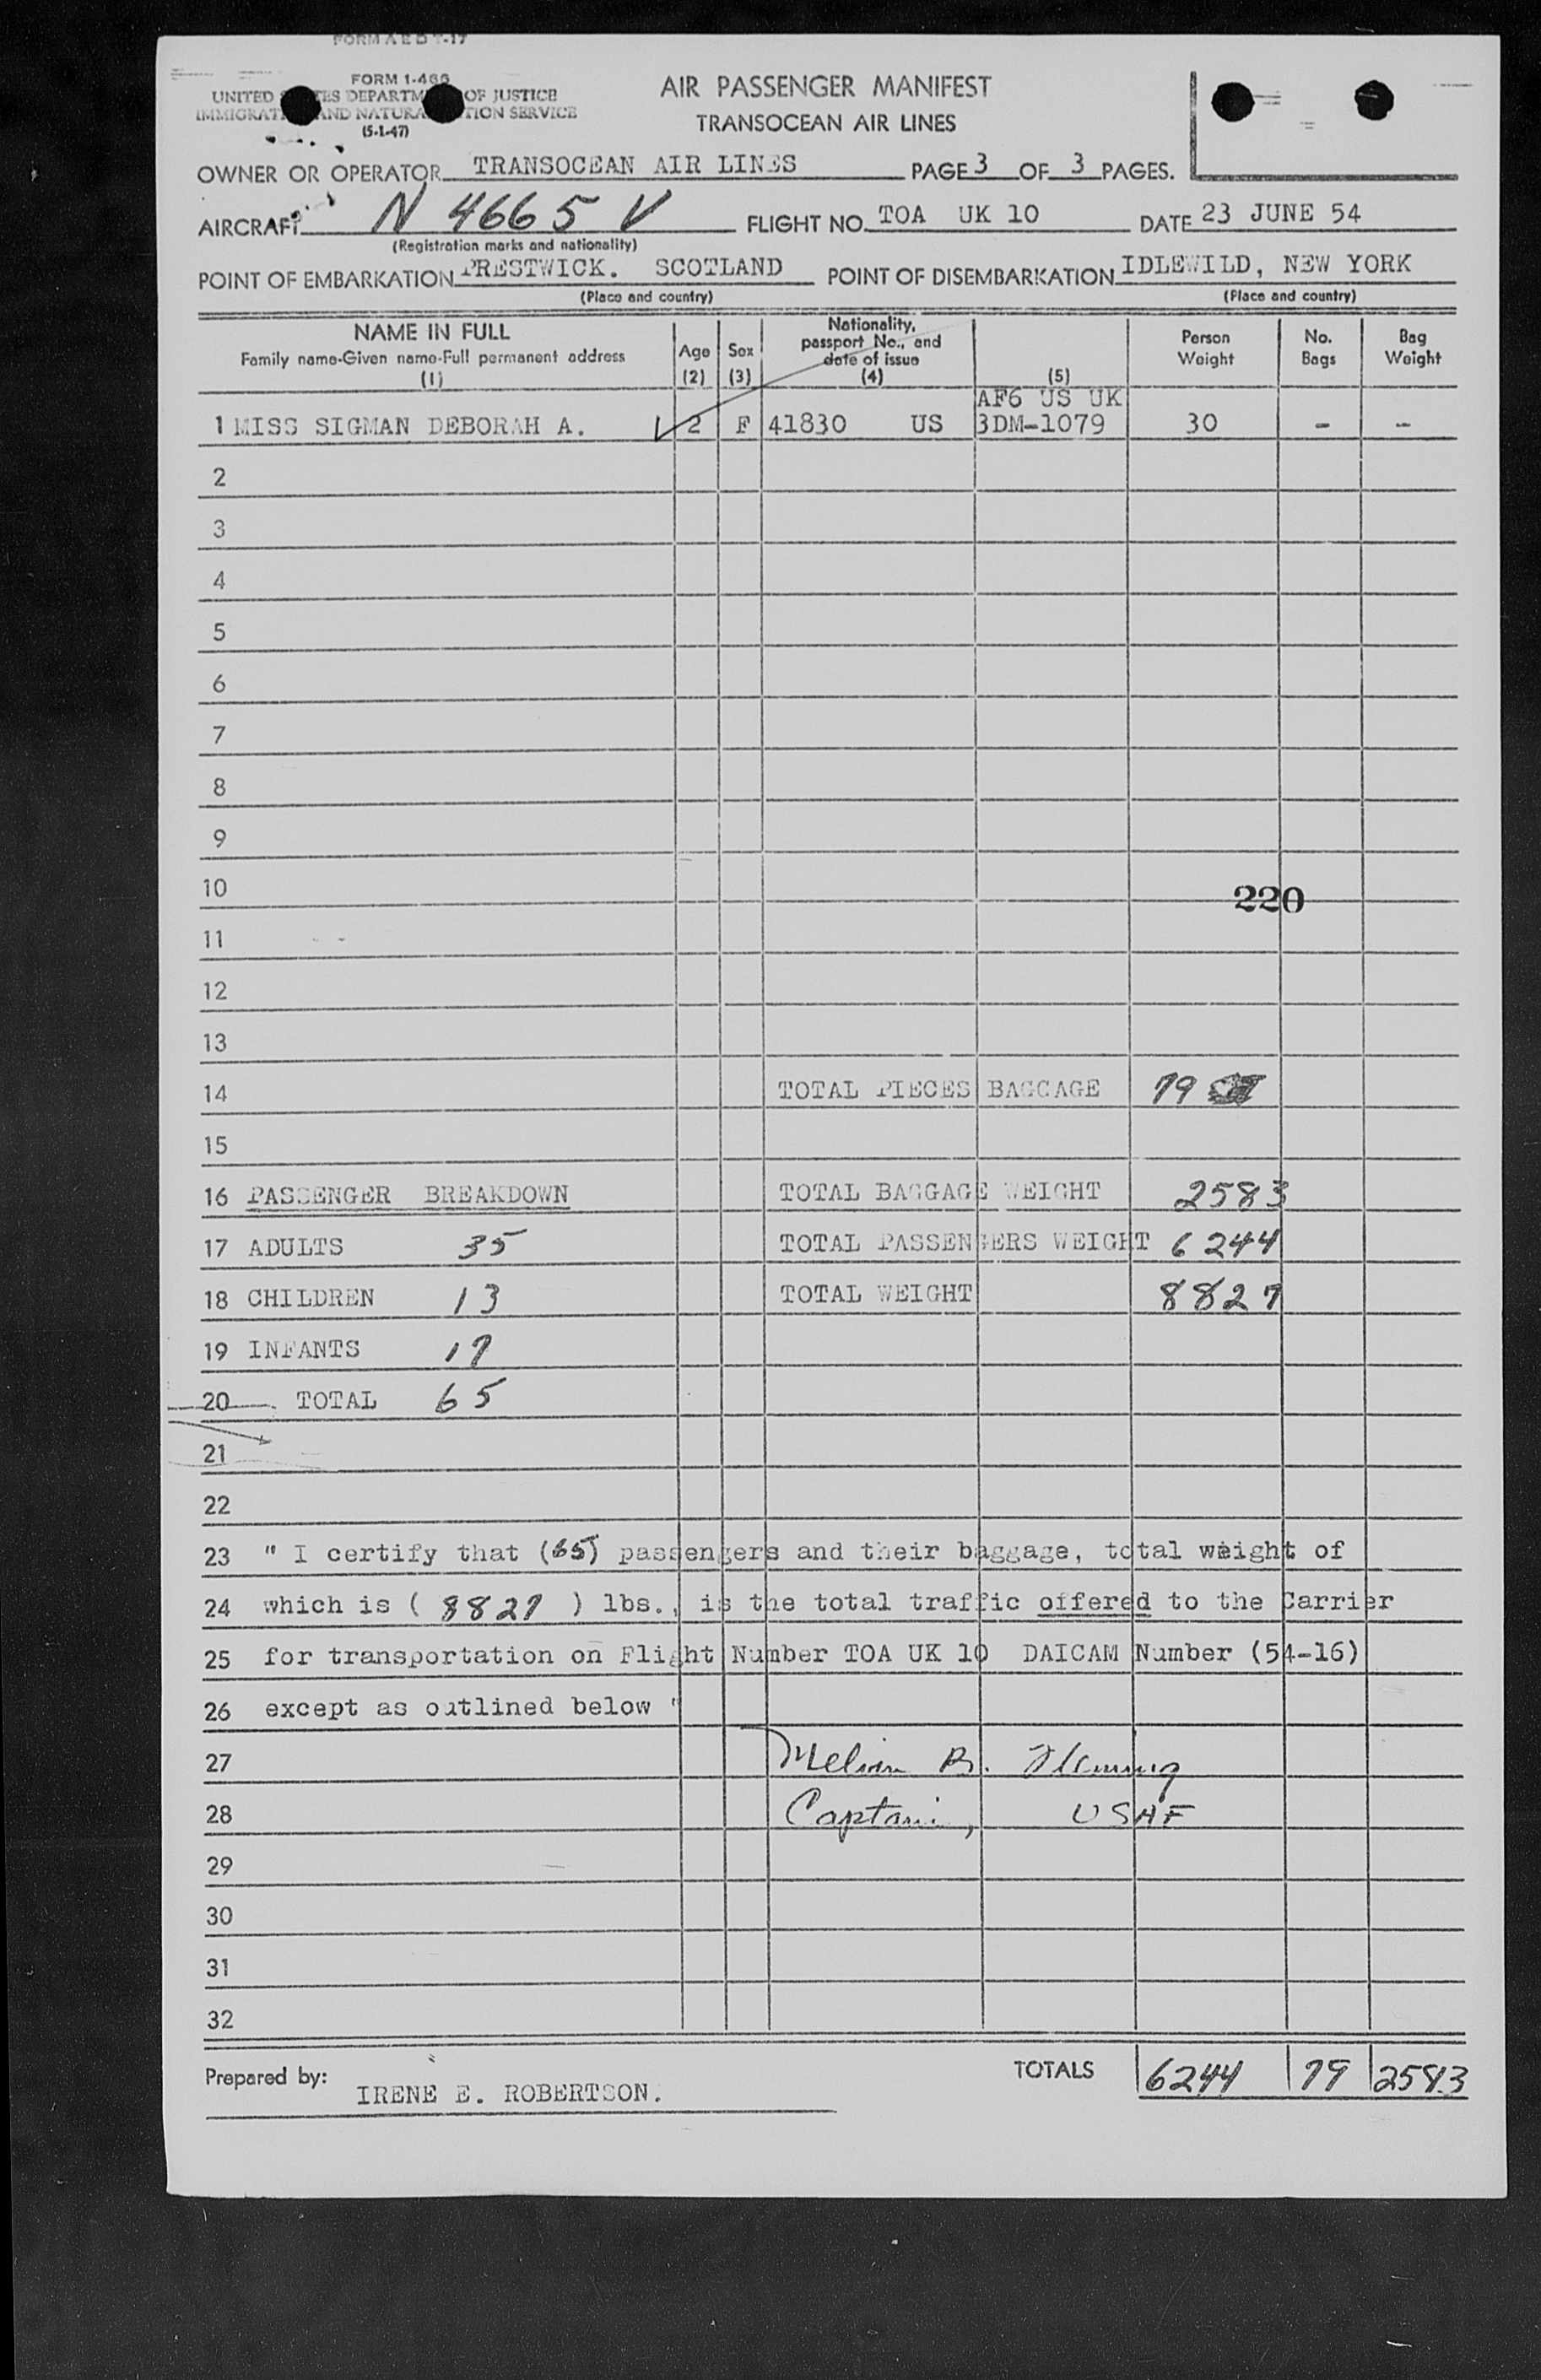 FORM A E D 7-17
FORM 1-466
UNITED STATES DEPARTMENT OF JUSTICE
IMMIGRATION AND NATURALIZATION SERVICE
(5-1-47)
AIR PASSENGER MANIFEST
TRANSOCEAN AIR LINES
OWNER OR OPERATOR TRANSOCEAN AIR LINES PAGE 3 OF 3 PAGES.
AIRCRAFT N 4665 V FLIGHT NO. TOA UK 10 DATE 23 JUNE 54
(Registration marks and nationality)
POINT OF EMBARKATION PRESTWICK. SCOTLAND POINT OF DISEMBARKATION IDLEWILD, NEW YORK
(Place and country) (Place and country)
NAME IN FULL
Family name-Given name-Full permanent address
(1)
Age
(2)
Sex
(3)
Nationality,
passport No., and
date of issue
(4)
(5)
Person
Weight
No.
Bags
Bag
Weight
AF6 US UK
1 MISS SIGMAN DEBORAH A. 2 F 41830 US 3DM-1079 30 - -
2
3
4
5
6
7
8
9
10 220
11
12
13
14 TOTAL PIECES BAGGAGE 79
15
16 PASSENGER BREAKDOWN TOTAL BAGGAGE WEIGHT 2583
17 ADULTS 35 TOTAL PASSENGERS WEIGHT 6244
18 CHILDREN 13 TOTAL WEIGHT 8827
19 INFANTS 17
20 TOTAL 65
21
22
23 " I certify that (65) passengers and their baggage, total weight of
24 which is ( 8827 ) lbs., is the total traffic offered to the Carrier
25 for transportation on Flight Number TOA UK 10 DAICAM Number (54-16)
26 except as outlined below "
27 Melvin B. Fleming
28 Captain, USAF
29
30
31
32
Prepared by: IRENE E. ROBERTSON. TOTALS 6244 79 2583